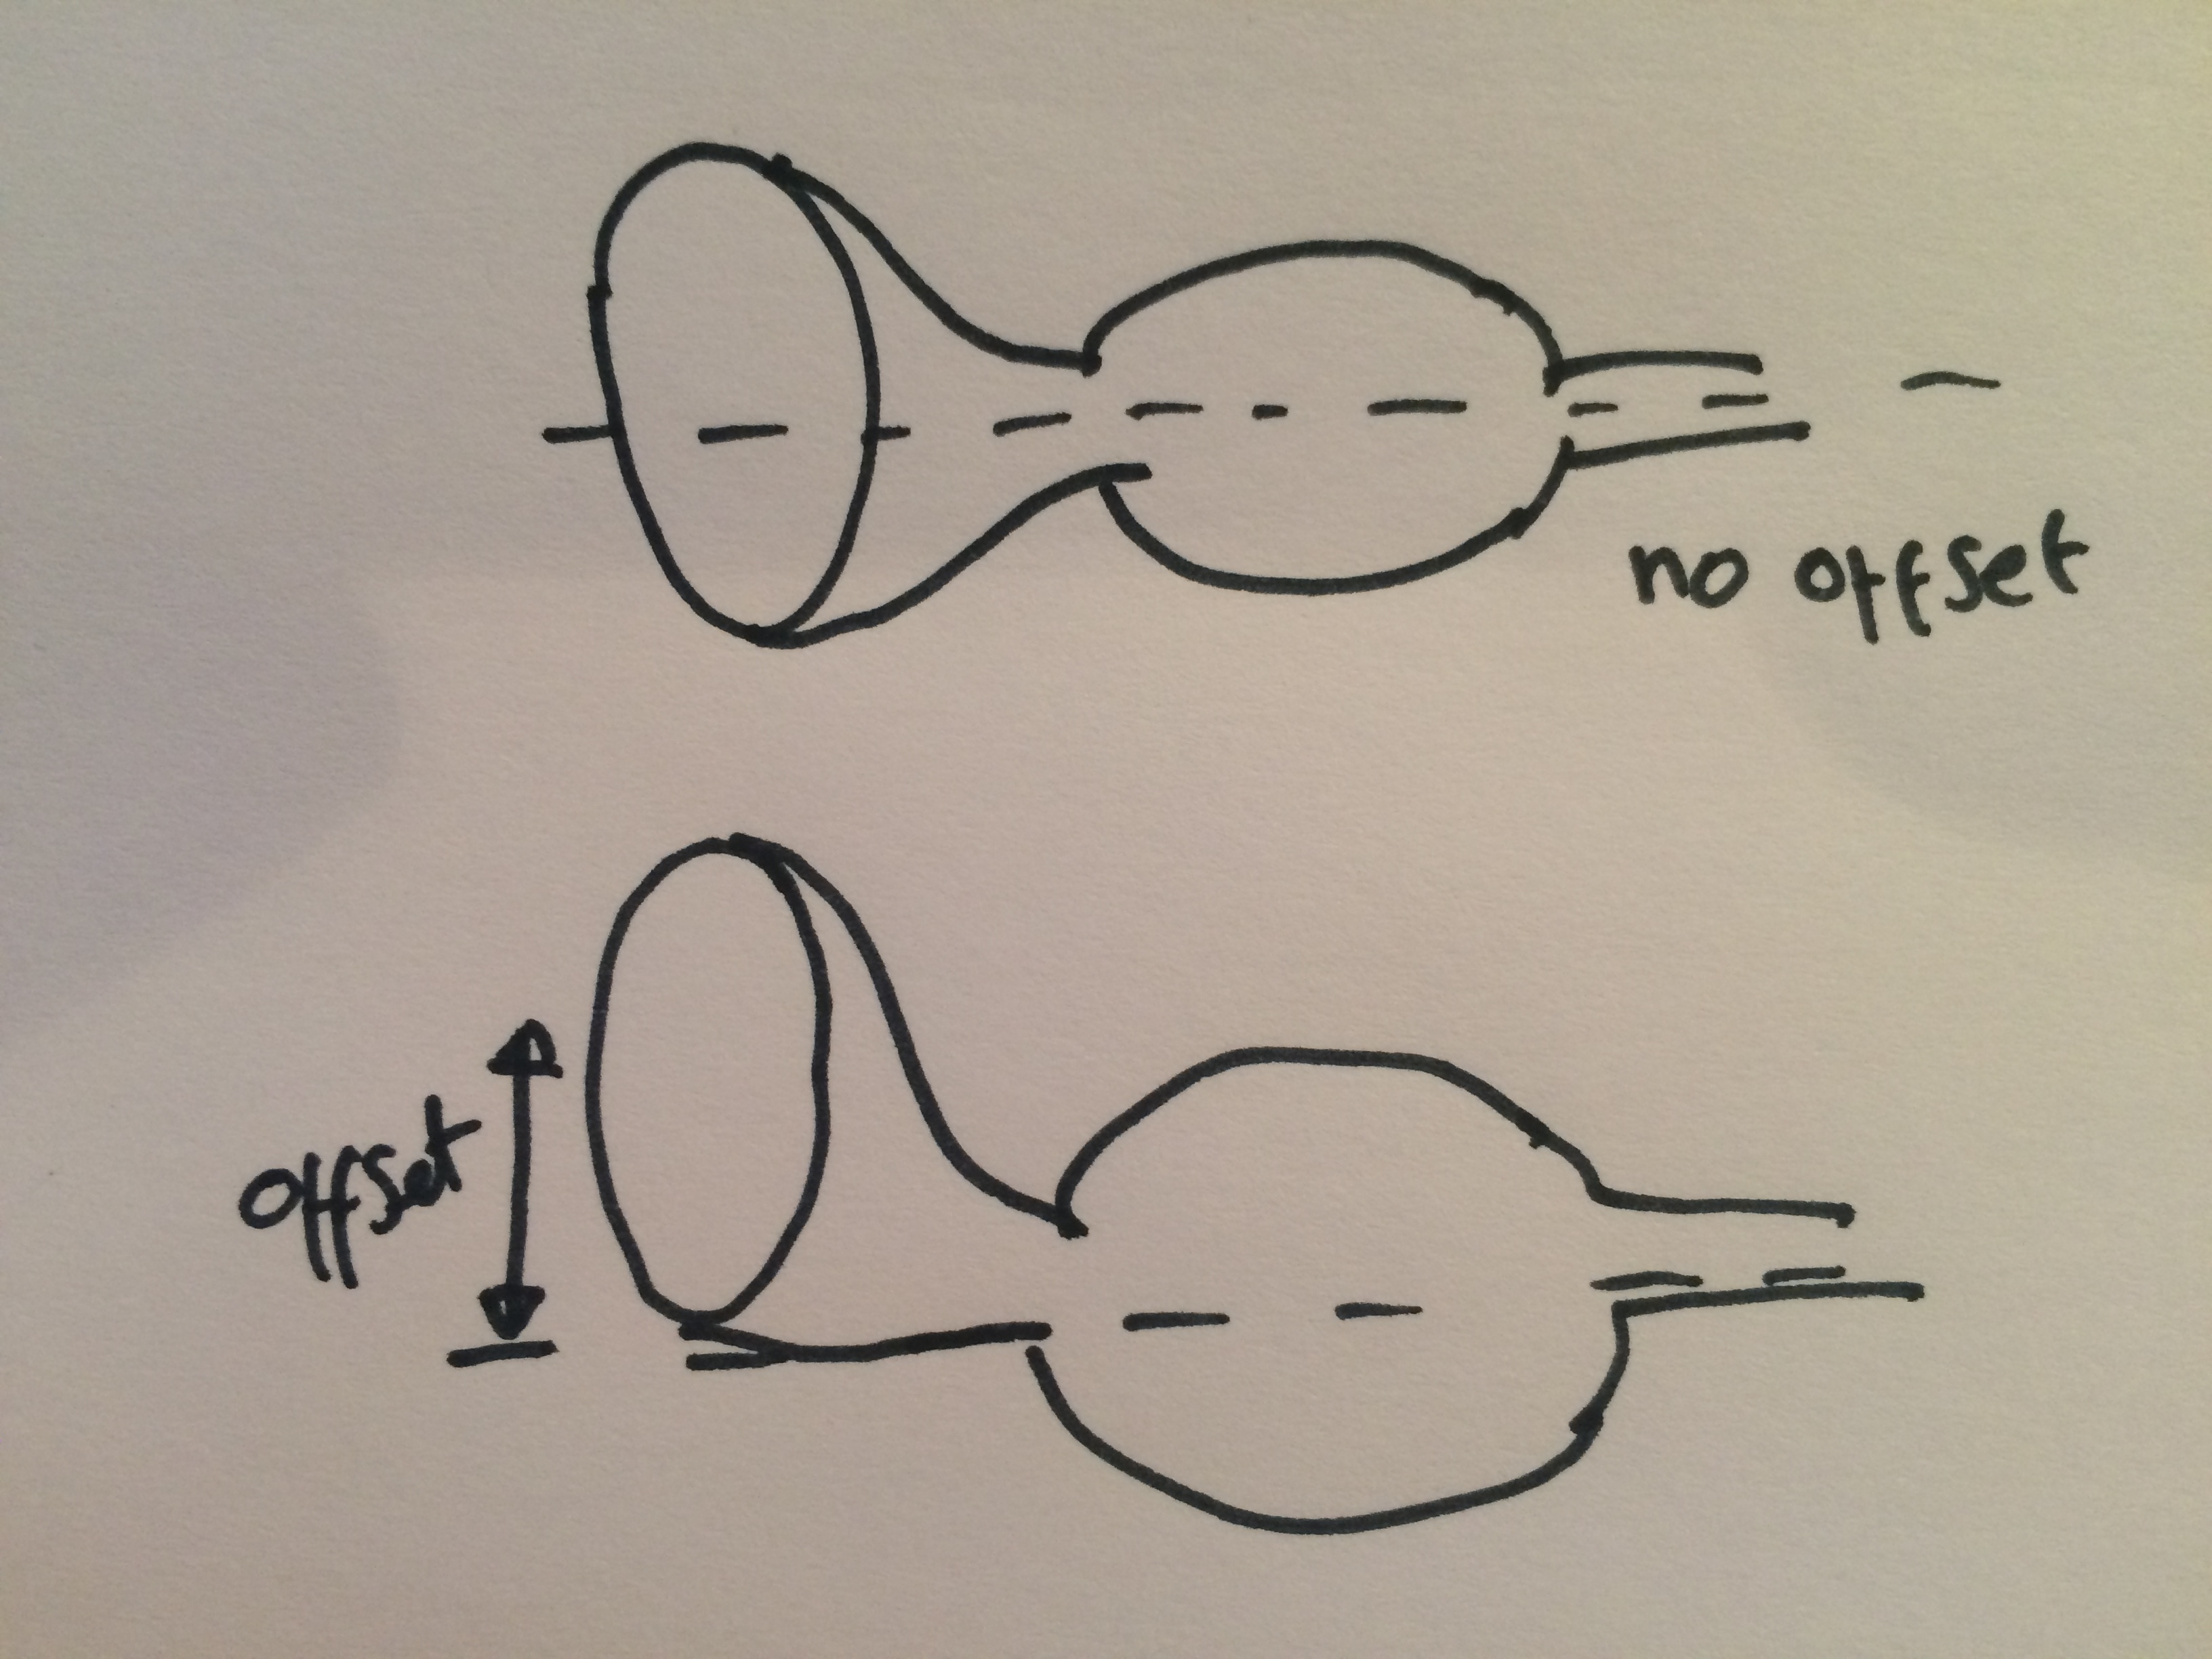 no offset
offset